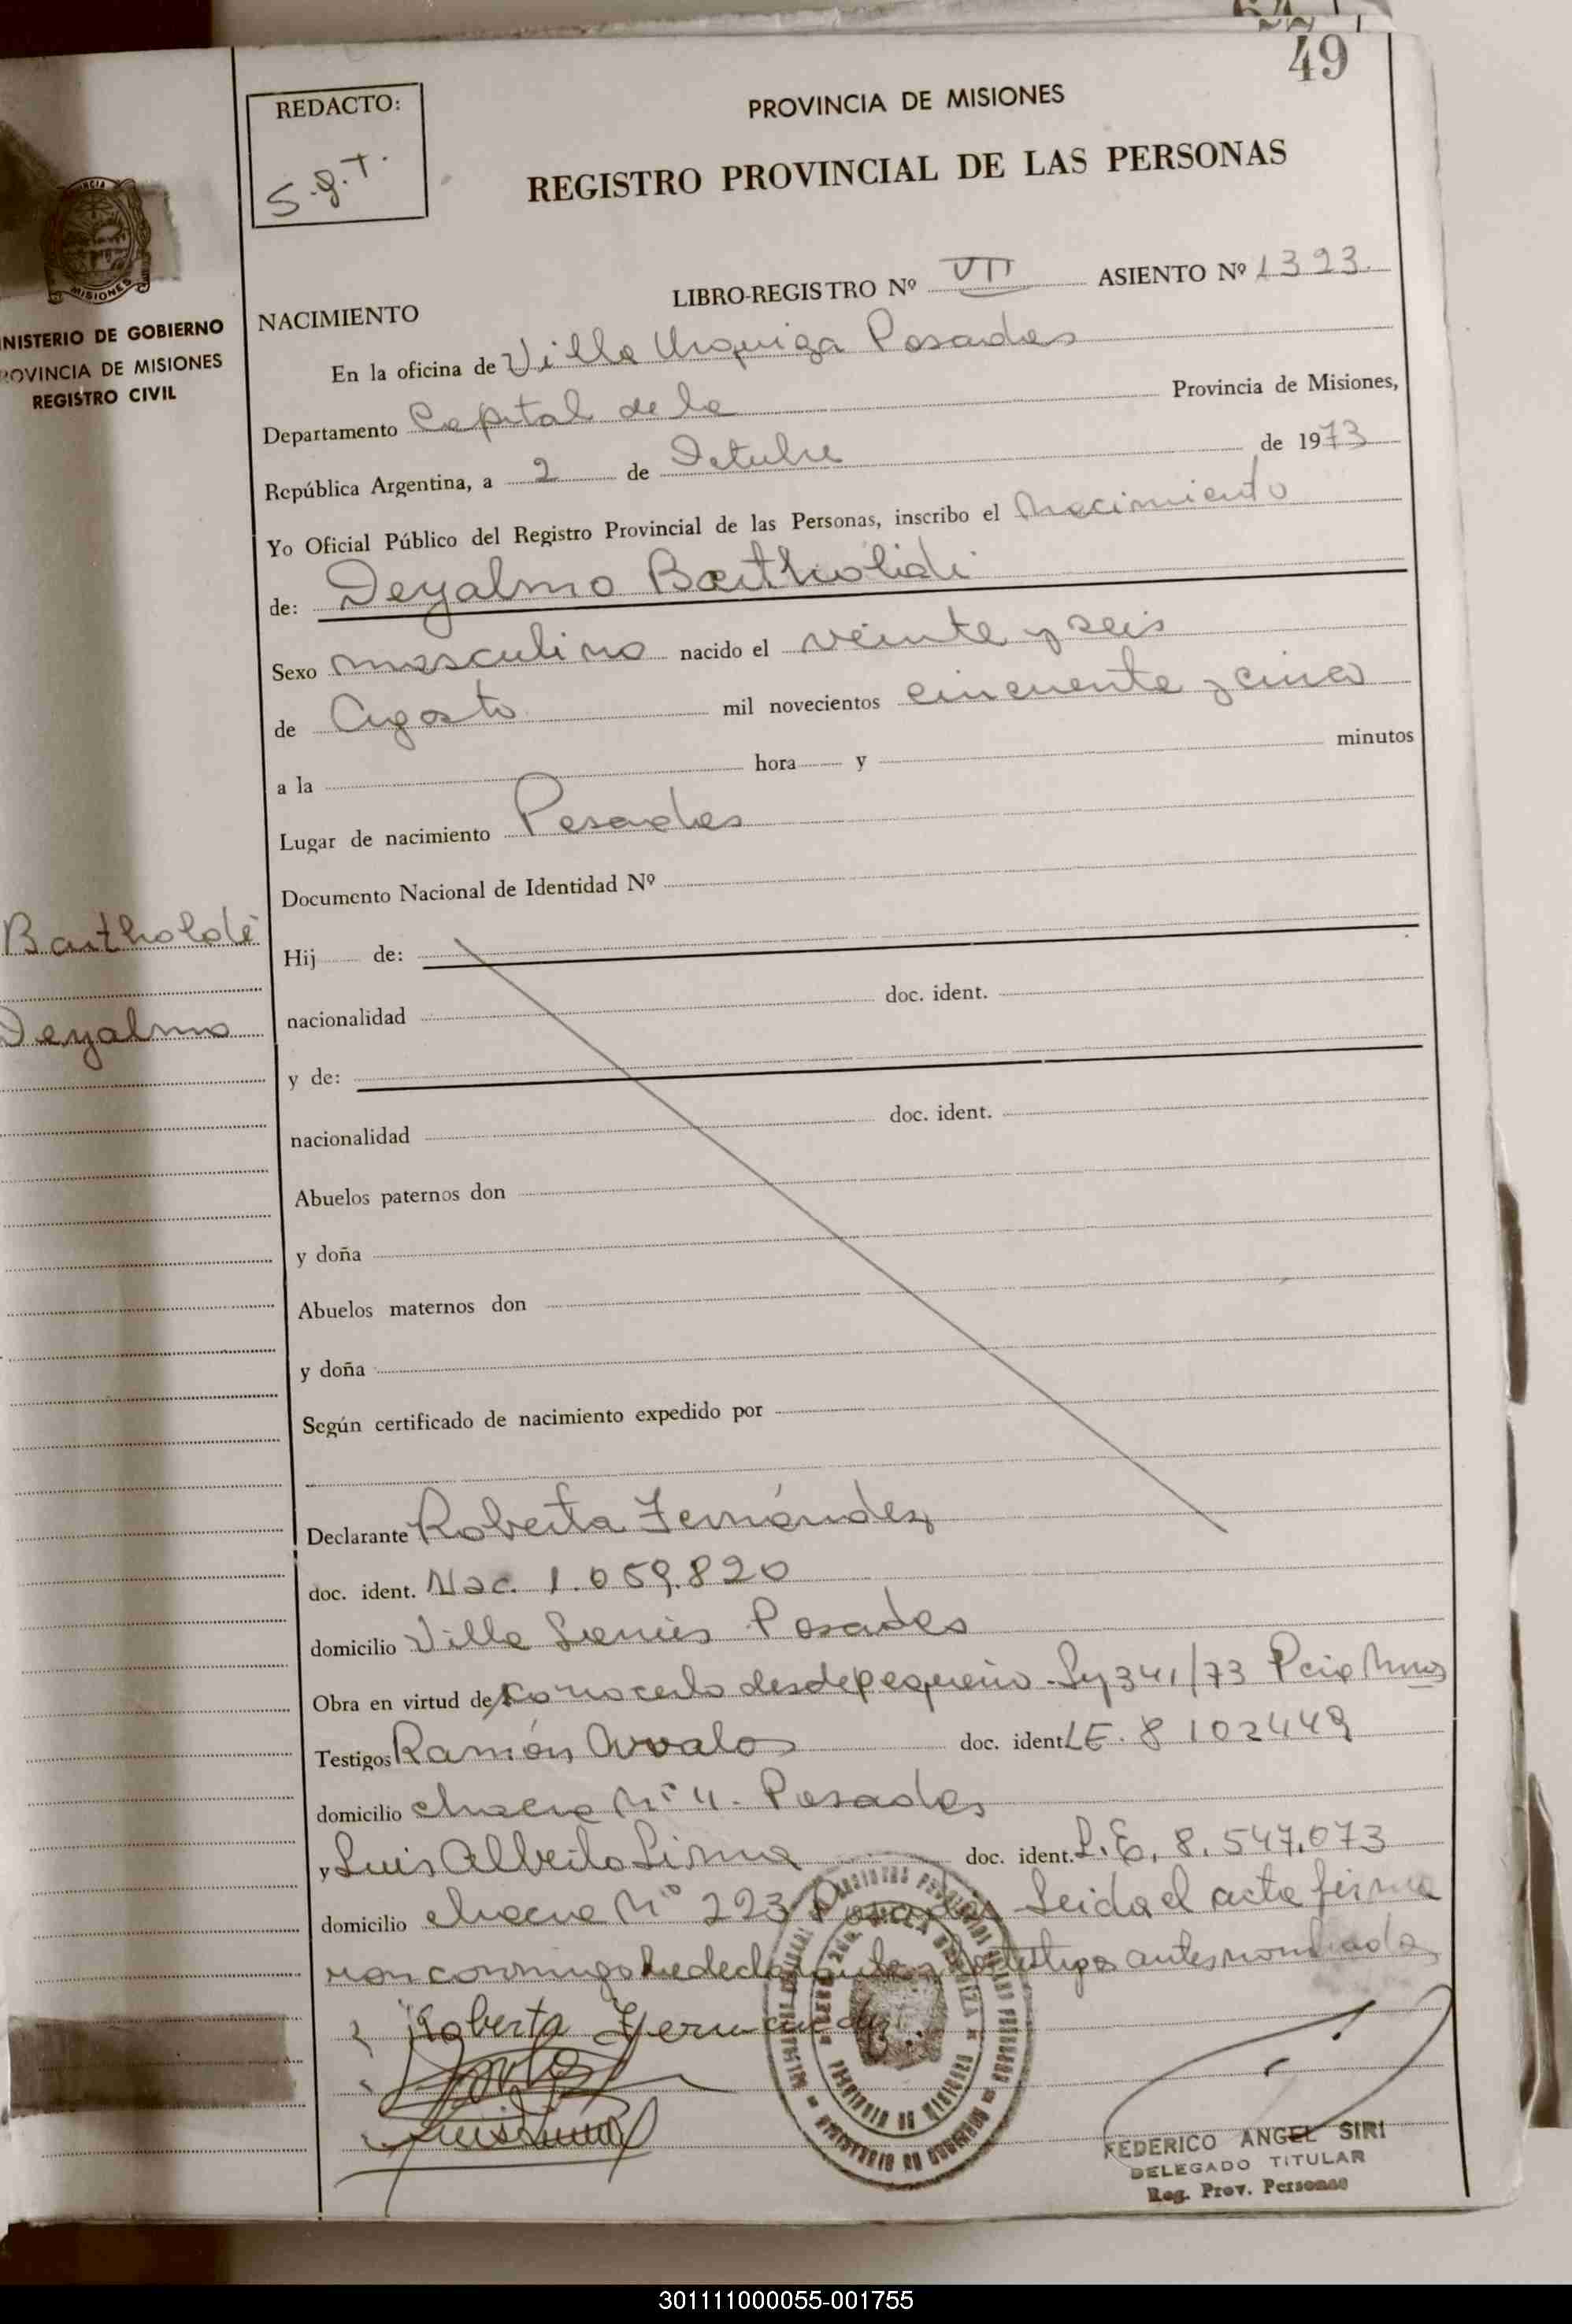 49
REDACTO:
S.g.T.
PROVINCIA DE MISIONES
REGISTRO PROVINCIAL DE LAS PERSONAS
MISIONES
NISTERIO DE GOBIERNO
ROVINCIA DE MISIONES
REGISTRO CIVIL
LIBRO-REGISTRO Nº VII ASIENTO Nº 1323.
NACIMIENTO
En la oficina de Villa Urquiza Posadas
Departamento Capital de la Provincia de Misiones,
República Argentina, a 2 de Octubre de 1973
Yo Oficial Público del Registro Provincial de las Personas, inscribo el Nacimiento
de: Deyalmo Bartholidi
Sexo masculino nacido el veinte y seis
de Agosto mil novecientos cincuenta y cinco
a la hora y minutos
Lugar de nacimiento Posadas
Documento Nacional de Identidad Nº
Bartholdi
Deyalmo
Hij de:
nacionalidad doc. ident.
y de:
nacionalidad doc. ident.
Abuelos paternos don
y doña
Abuelos maternos don
y doña
Según certificado de nacimiento expedido por
Declarante Roberta Fernández
doc. ident. Nac. 1.059.820
domicilio Villa Posadas
Obra en virtud de conocerlo desde pequeño - Ly 341/73 Pcia Mnes
Testigos Ramón Arvalo doc. ident LE. 8 102449
domicilio chacra Nº 4. Posadas
y Luis Alberto Lima doc. ident. L.E. 8.547.073
domicilio chacra Nº 223 Posadas Leida el acta firma
ron conmigo la declarante y testigos antes nombrados
Roberta Fernandez
Luis Lima
FEDERICO ANGEL SIRI
DELEGADO TITULAR
Reg. Prov. Personas
301111000055-001755